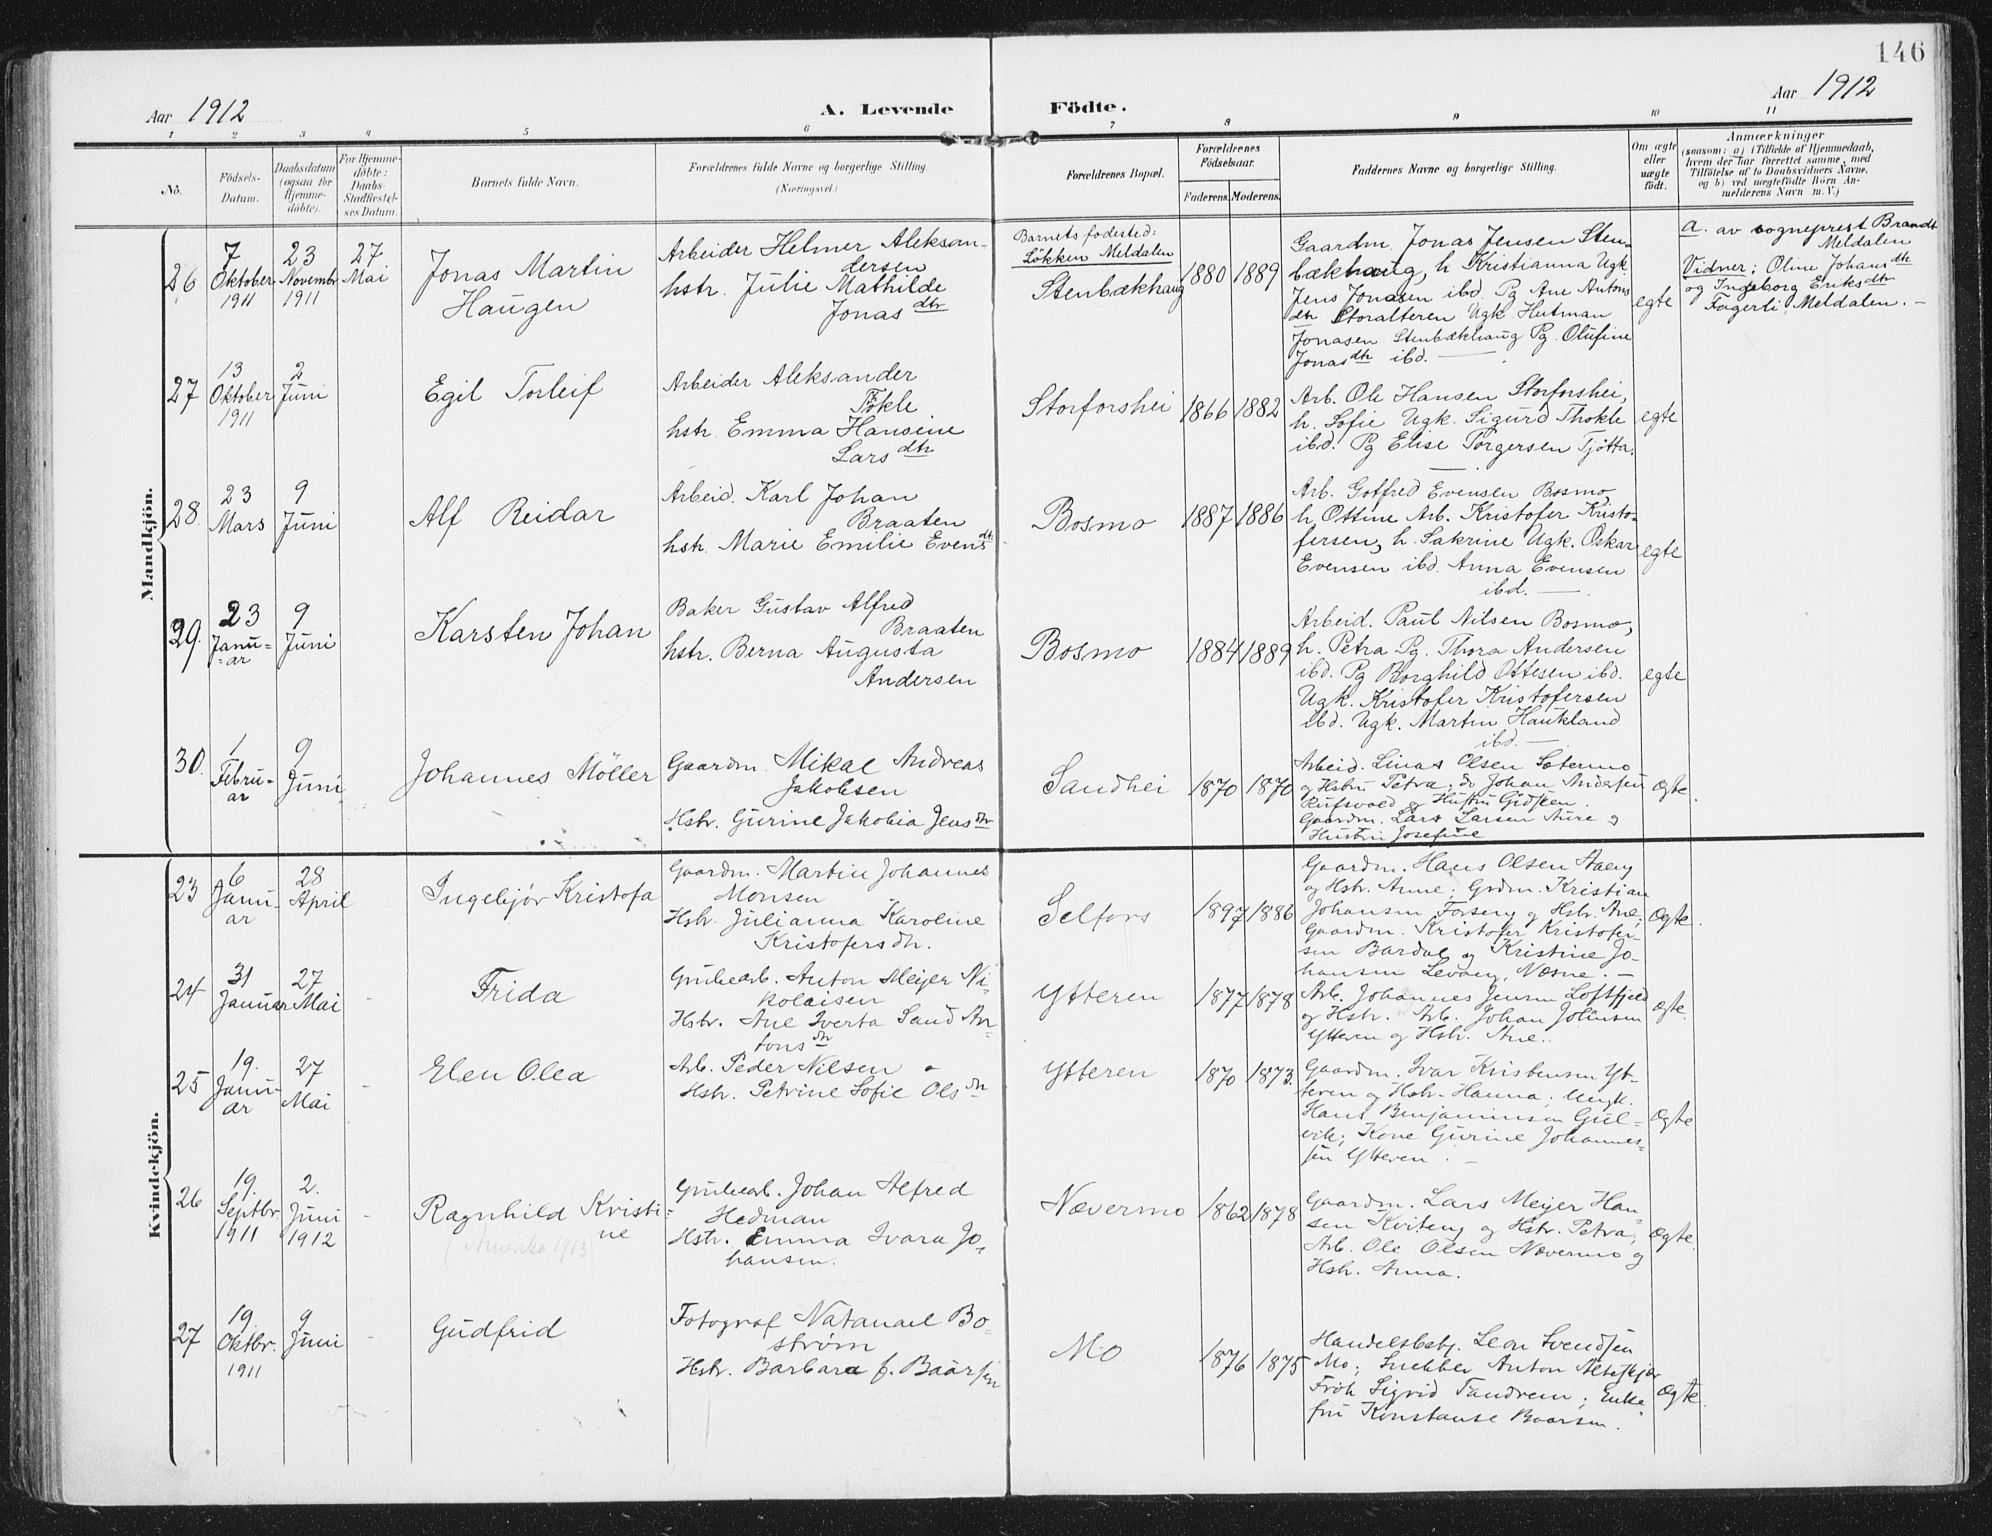 146
Aar 1912
A. Levende
Födte.
Aar 1912
1 2 3 4 5 6 7 8 9 10 11
No.
Födsels-
Datum.
Daabsdatum
(ogsaa for
Hjemme-
döbte).
For Hjemme-
döbte:
Daabs-
Stadfæstel-
ses Datum.
Barnets fulde Navn.
Forældrenes fulde Navne og borgerlige Stilling.
(Næringsvei.)
Forældrenes Bopæl.
Forældrenes
Födselsaar.
Faderens. Moderens.
Faddernes Navne og borgerlige Stilling.
Om ægte
eller
uægte
födt.
Anmærkninger
(saasom: a) i Tilfælde af Hjemmedaab,
hvem der har forrettet samme, med
Tilföielse af to Daabsvidners Navne,
og b) ved uægtefödte Börn An-
melderens Navn m. V.)
Mandkjön.
26
7
Oktober
1911
23
Novembr
1911
27
Mai
Jonas Martin
Haugen
Arbeider Helmer Aleksan-
dersen
hstr. Julie Mathilde
Jonas dtr
Barnets fødested:
Løkken Meldalen
Stenbækhaug
1880
1889
Gaardm. Jonas Jensen Sten-
bækhaug, h. Kristianna Ugk.
Jens Jonasen ibd. Pg Ane Antons
dtr Storalteren Ugk. Hutman
Jonasen Stenbækhaug Pg. Olufine
Jonas dtr ibd.
egte
a. av sogneprest Brandt
Meldalen
Vidner: Oline Johans dtr
og Ingeborg Eriks dtr
Fagerli Meldalen.
27
13
Oktober
1911
2
Juni
Egil Torleif
Arbeider Aleksander
Tökle
hstr. Emma Hansine
Lars dtr
Storforshei
1866
1882
Arb. Ole Hansen Storforshei,
h. Sofie Ugk. Sigurd Thokle
ibd. Pg Elise Torgersen Tjötta.
egte
28
23
Mars
9
Juni
Alf Reidar
Arbeid. Karl Johan
Braaten
hstr. Marie Emilie Evens dtr
Bosmo
1887
1886
Arb. Gotfred Evensen Bosmo,
h. Ottine Arb. Kristofer Kristo-
fersen, h. Sakrine Ugk. Oskar
Evensen ibd. Anna Evensen
ibd.
egte
29.
23
Janu-
ar
9
Juni
Karsten Johan
Baker Gustav Alfred
Braaten
hstr. Berna Augusta
Andersen
Bosmo
1884
1889
Arbeid. Paul Nilsen Bosmo,
h. Petra Pg. Thora Andersen
ibd. Pg Borghild Ottesen ibd.
Ugk. Kristofer Kristofersen
ibd. Ugk. Martin Haukland
ibd.
egte
30.
1
Febru-
ar
9
Juni
Johannes Möller
Gaardm. Mikal Andreas
Jakobsen
Hstr. Gurine Jakobia Jens dtr
Sandhei
1870
1870
Arbeid. Linas Olsen Sætermo
og Hstru Petra; do Johan Andersen
og Hustru
Gaardm. Lars Larsen Aure og
Hustru Josefine
Ægte.
Kvindekjön.
23
6
Janu-
ar
28
April
Ingebjör Kristofa
Gaardm. Martin Johannes
Monsen
Hstr. Julianna Karoline
Kristofersdtr.
Selfors
1897
1886
Gaardm. Hans Olsen Aaeng
og Hstr. Anne; Grdm. Kristian
Johansen Forseng og Hstr. Ane;
Gaardm. Kristofer Kristofer-
sen Bardal og Kristine Jo-
hansen Levang, Nesne. -
Ægte.
24
31
Januar
27
Mai
Frida
Grubearb. Anton Meijer Ni-
kolaisen
Hstr. Ane Iverta Sand An-
tons dtr
Ytteren
1877
1878
Arb. Johannes Jensen Loftfjeld
og Hstr. Arb. Johan Johnsen
Ytteren og Hstr. Ane.
Ægte.
25
19.
Janu-
ar
27
Mai
Elen Olea
Arb. Peder Nilsen
Hstr. Petrine Sofie Ols dtr
Ytteren
1870
1873.
Gaardm. Ivar Kristensen Yt-
teren og Hstr. Hanna; Ungk.
Hans Benjaminsen Gul-
vik; Kone Gurine Johannes-
sen Ytteren.
Ægte
26
19.
Septbr.
1911
2.
Juni
1912
Ragnhild Kristi-
ne
(Amerika 1913)
Grubearb. Johan Alfred
Hedman
Hstr. Emma Ivara Jo-
hansen.
Nævermo
1862
1878
Gaardm. Lars Meijer Han-
sen Kviteng og Hstr. Petra;
Arb. Ole Olsen Nævermo og
Hstr. Anna.
Ægte.
27
19.
Oktbr.
1911
9
Juni
Gudfrid
Fotograf Natanael Bo-
strøm
Hstr. Barbara f. Baarsen
Mo
1876
1875
Handelsbetj. Leon Svendsen
Mo; Snekker Anton
Frök. Sigrid Tandrem; Enke-
fru Konstanse Baarsen.
Ægte.